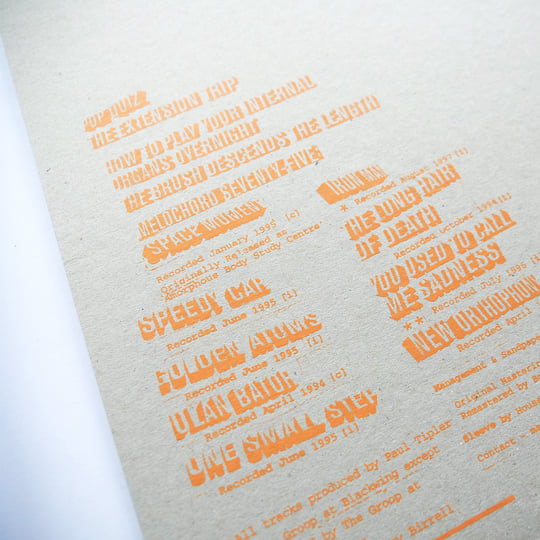 POP QUIZ
THE EXTENSION TRIP
HOW TO PLAY YOUR INTERNAL
ORGANS OVERNIGHT
THE BRUSH DESCENDS THE LENGTH
MELOCHORD SEVENTY-FIVE
SPANK MOMENT
Recorded January 1995 (c)
Originally Released as
'Amorphous Body Study Centre'
SPEEDY CAR
Recorded June 1995 (i)
GOLDEN ATOMS
Recorded June 1995 (i)
ULAN BATOR
Recorded April 1994 (c)
ONE SMALL STEP
Recorded June 1995 (i)
IRON MAN
* Recorded August 1997 (i)
THE LONG HAIR
OF DEATH
Recorded October 1994 (i)
YOU USED TO CALL
ME SADNESS
** Recorded July 1995 (i)
NEW ORTHOPHON
Recorded April
Management & Sandpape
Original Masterin
Remastered by Bo
Sleeve by House
Contact - ma
all tracks produced by Paul Tipler
Groop at Blackwing except
by The Groop at
y Birrell